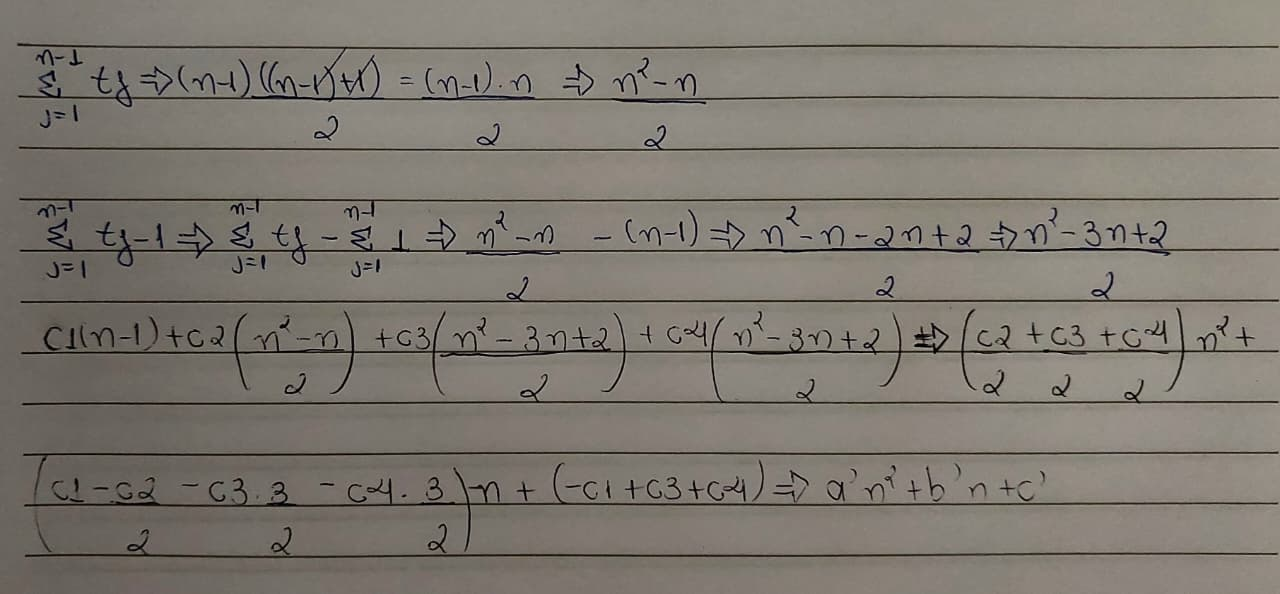 ∑_{j=1}^{n-1} tj ⇒ (n-1)((n-1)+1)/2 = (n-1).n/2 ⇒ n²-n/2
∑_{j=1}^{n-1} tj-1 ⇒ ∑_{j=1}^{n-1} tj - ∑_{j=1}^{n-1} 1 ⇒ n²-n/2 - (n-1) ⇒ n²-n-2n+2/2 ⇒ n²-3n+2/2
C1(n-1)+C2(n²-n/2) + C3(n²-3n+2/2) + C4(n²-3n+2/2) ⇒ (C2/2 + C3/2 + C4/2) n² +
(C1 - C2/2 - C3.3/2 - C4.3/2) n + (-C1+C3+C4) ⇒ a'n²+b'n+c'